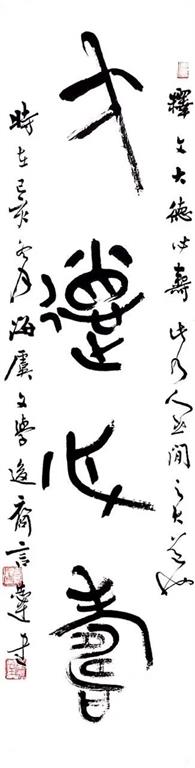 釋文大德必壽此乃人世間之大道也
大德必壽
時在己亥冬月海虞文學後裔言書